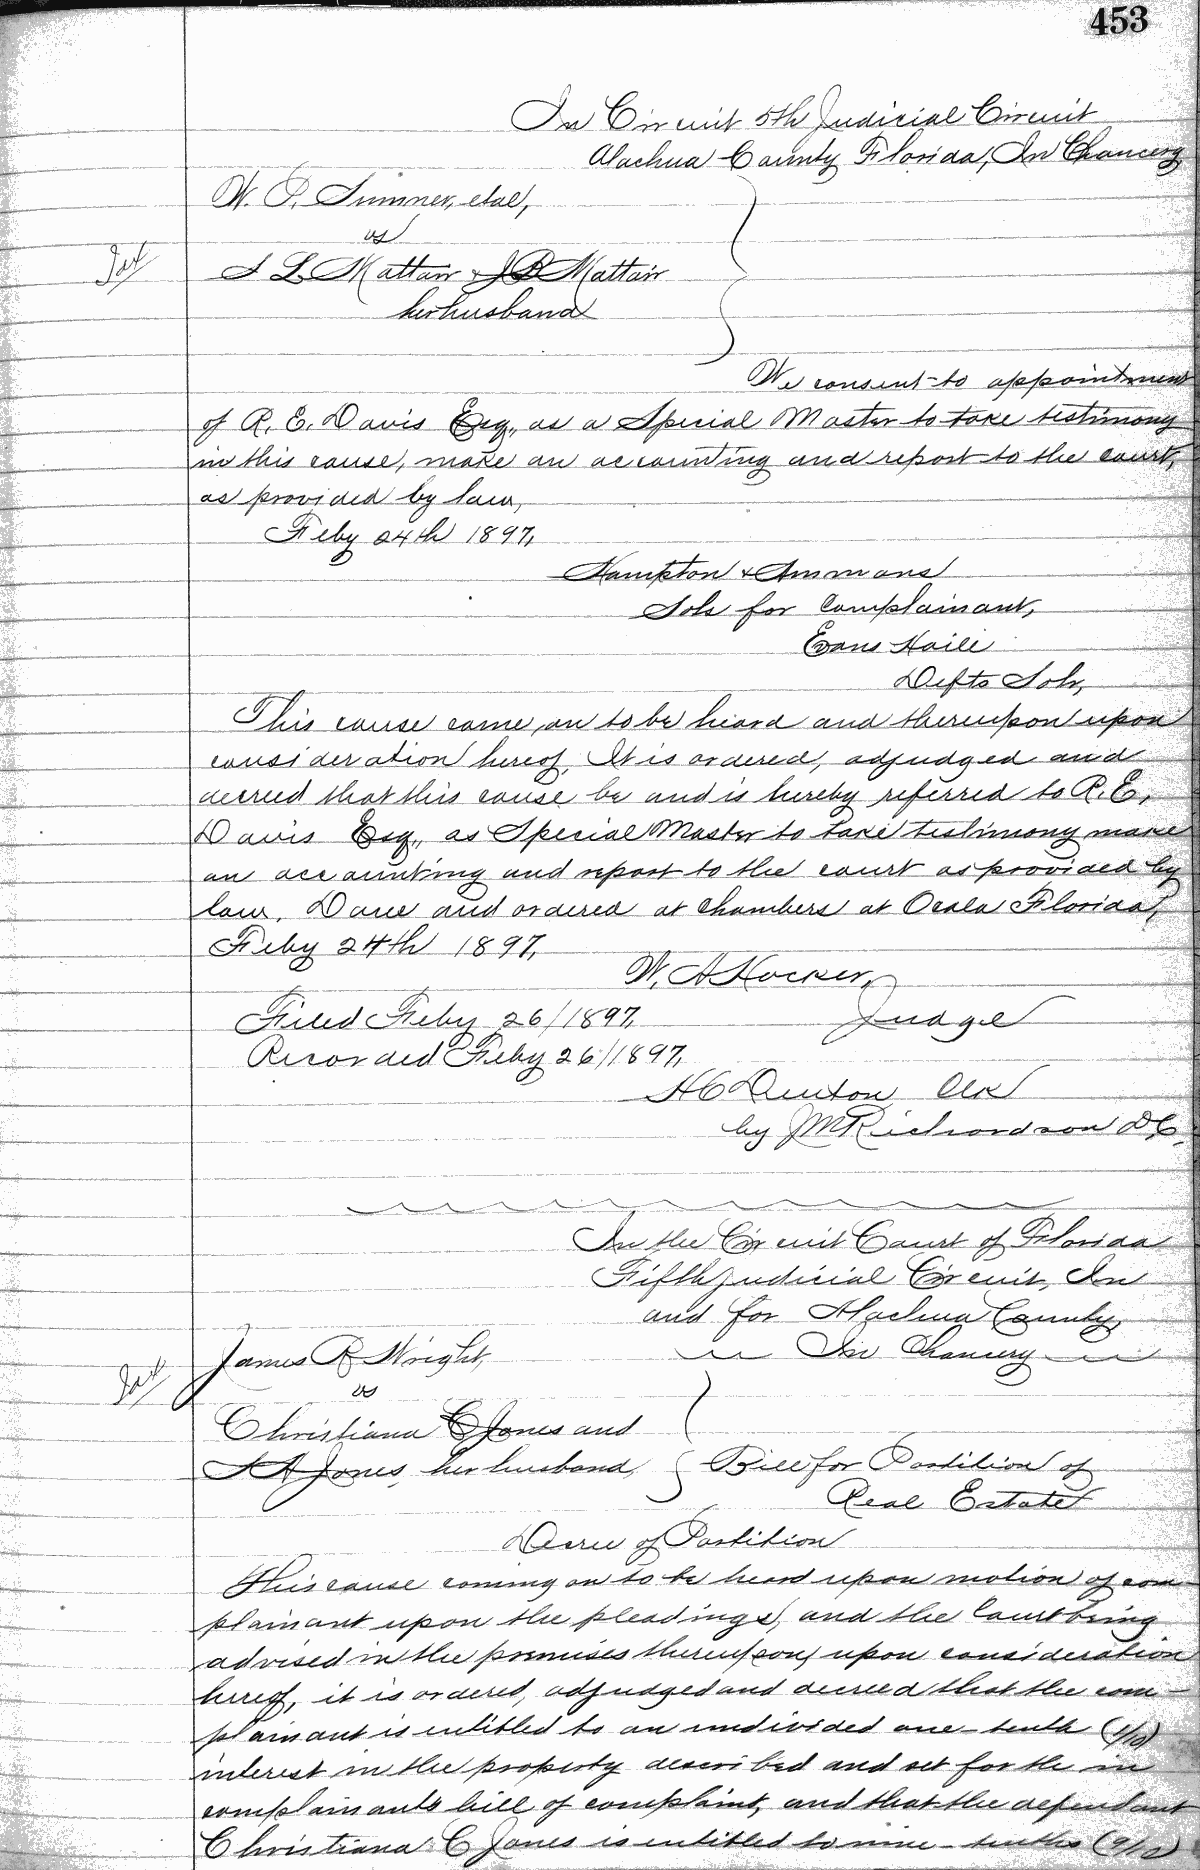 453
In Circuit 5th Judicial Circuit
Alachua County Florida, In Chancery
W. P. Sumner, etal,
vs
S L Mattair & J P Mattair
her husband
We consent to appointment
of R. E. Davis Esq., as a Special Master to take testimony
in this cause, make an accounting and report to the court,
as provided by law,
Feby 24th 1897,
Hampton & Ammons
Sols for Complainant,
Evans Haile
Defts Sols,
This cause come on to be heard and thereupon upon
consideration hereof, It is ordered, adjudged and
decreed that this cause be and is hereby referred to R. E,
Davis Esq., as Special Master to take testimony make
an accounting and report to the court as provided by
law. Done and ordered at Chambers at Ocala Florida,
Feby 24th 1897,
W. A Hocker,
Filed Feby 26/1897, Judge
Recorded Feby 26/1897,
H C Denton Clk
by J M Richardson D C,
In the Circuit Court of Florida
Fifth Judicial Circuit, In
and for Alachua County,
James R Wright, In Chancery
vs
Christiana C Jones and
A A Jones, her husband, Bill for Partition of
Real Estate
Decree of Partition
This cause coming on to be heard upon motion of com-
plainant upon the pleadings, and the Court being
advised in the premises thereupon, upon consideration
hereof, it is ordered, adjudged and decreed that the com-
plainant is entitled to an undivided one-tenth (1/10)
interest in the property described and set for the in
complainants bill of complaint, and that the defendant
Christiana C Jones is entitled to nine-tenths (9/10)